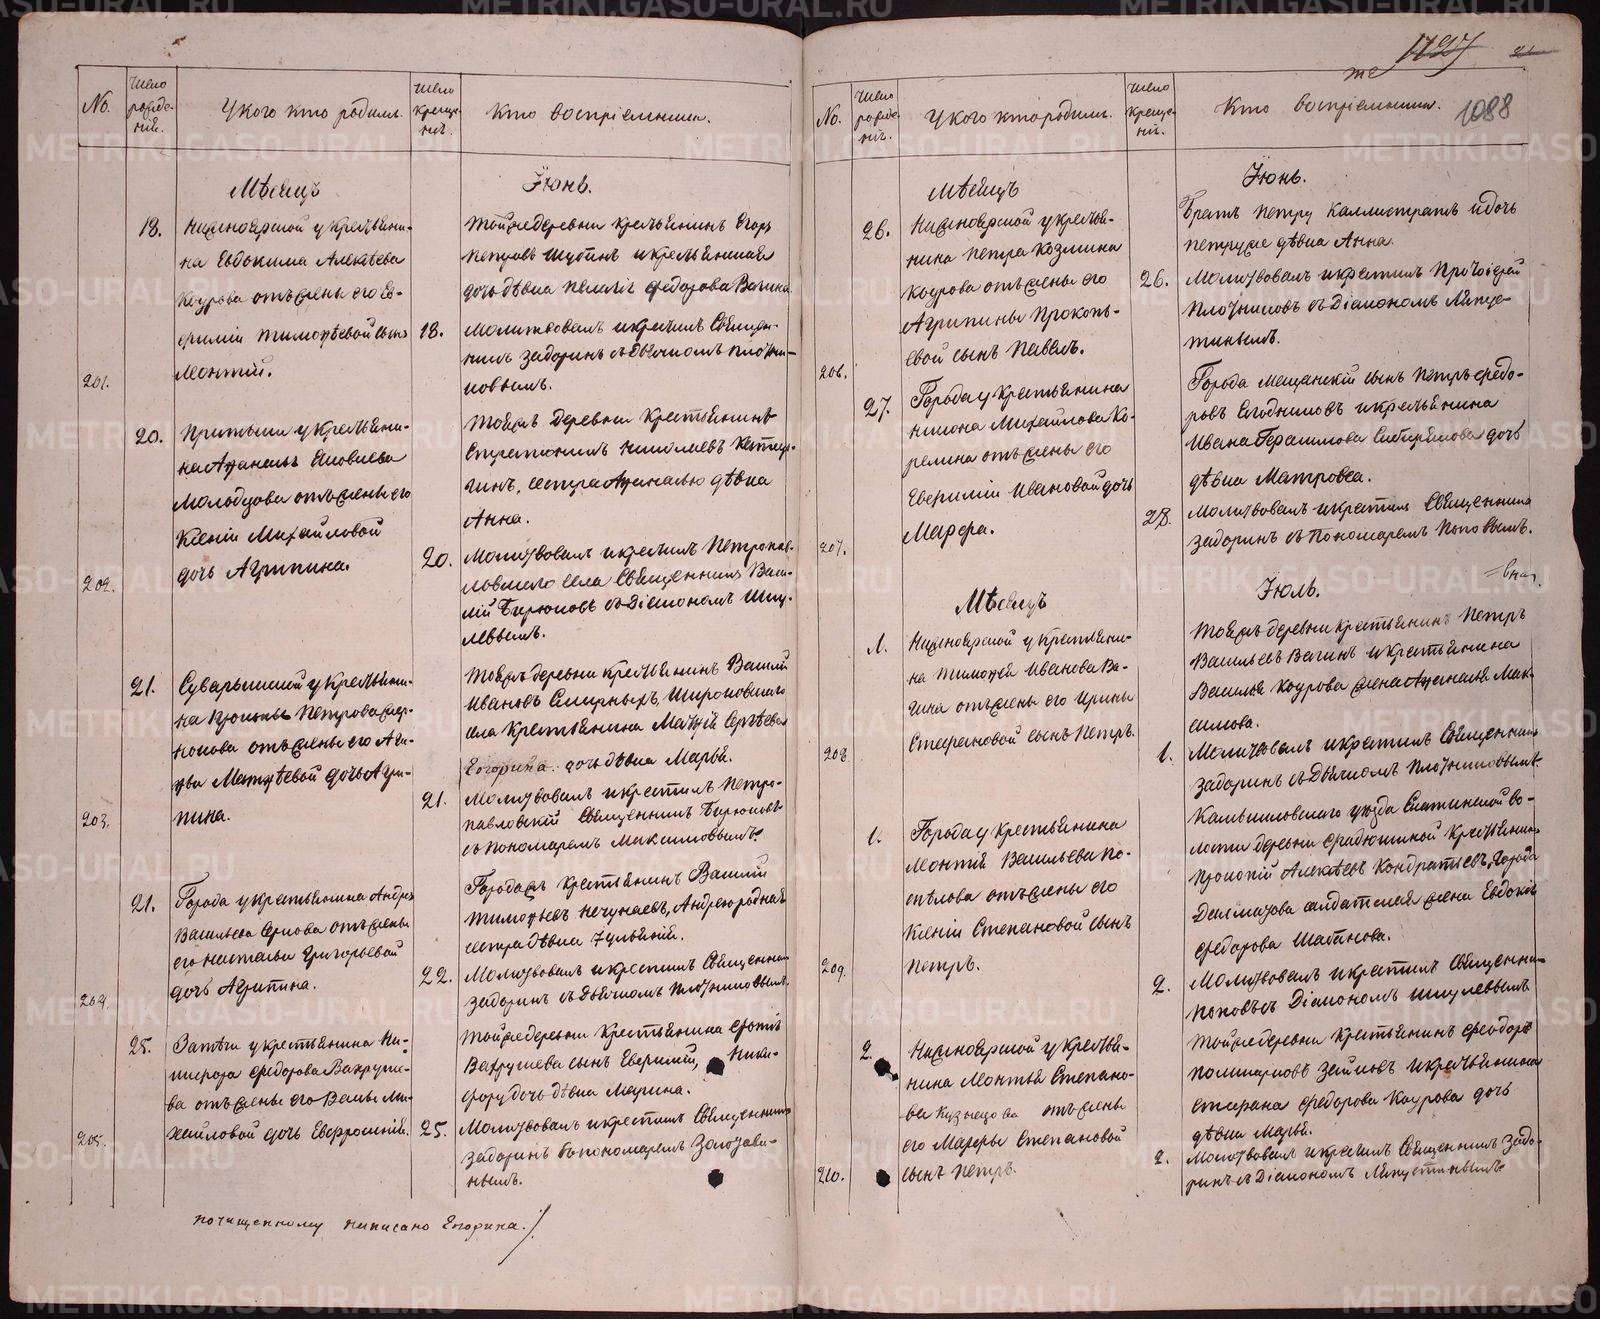 No.
Число рожде-
ній.
У кого кто родился.
Число креще-
ній.
Кто воспріемники.
Мѣсяцъ
Іюнь.
201.
18.
Нижноярской у крестьяни-
на Евдокима Алексѣева
Коурова отъ жены его Ев-
фиміи Тимоѳѣевой сынъ
Леонтій.
Той же деревни крестьянинъ Егоръ
Петровъ и крестьянская
дочь дѣвка Ѳедорова Вагина
18.
Молитвовалъ и крестилъ Священ-
никъ Задоринъ съ Дьячкомъ Плотни-
ковымъ.
202.
20.
у крестьяни-
на Аѳанасья Яковлева
Молодцова отъ жены его
Ксеніи Михайловой
дочь Агрипина.
Тояжъ деревни крестьянинъ
сестра Аѳанасью дѣвка
Анна.
20.
Молитвовалъ и крестилъ Петропав-
ловскаго села Священникъ Васи-
лій Бирюковъ съ Діакономъ Шиш-
левымъ.
203.
21.
у крестьяни-
на Петрова
отъ жены его Ага-
фьи Матѳѣевой дочь Агри-
пина.
Тояжъ деревни крестьянинъ Василій
Ивановъ Смирныхъ, Широковскаго
села крестьянина Матѳій Сергѣева
Егорина дочь дѣвка Марья.
21.
Молитвовалъ и крестилъ Петро-
павловскій Священникъ Бирюковъ
съ пономаремъ Максимовымъ.
204.
21.
Города у крестьянина Андрея
Васильева отъ жены
его Настасьи Григорьевой
дочь Агрипина.
Города жъ крестьянинъ Василій
Тимоѳѣевъ Нечунаевъ, Андрею родная
сестра дѣвка Іульянія.
22.
Молитвовалъ и крестилъ Священникъ
Задоринъ съ Дьячкомъ Плотниковымъ.
205.
25.
у крестьянина Ни-
кифора Ѳедорова Вахруше-
ва отъ жены его Ми-
хайловой дочь Евфросинія.
Той же деревни крестьянина
Вахрушева сынъ Евфимій, Ники-
фору дочь дѣвка Марина.
25.
Молитвовалъ и крестилъ Священникъ
Задоринъ съ пономаремъ Золотави-
нымъ.
По чищенному написано Егорина.
1127
1088
No.
Число рожде-
ній.
У кого кто родился.
Число креще-
ній.
Кто воспріемники.
Мѣсяцъ
Іюнь.
206.
26.
Нижноярской у крестья-
нина Петра Козмина
Коурова отъ жены его
Агрипины Прокопь-
евой сынъ Павелъ.
Братъ Петру Каллистратъ и дочь
Петру же дѣвка Анна.
26.
Молитвовалъ и крестилъ Протоіерей
Плотниковъ съ Діакономъ Ляпус-
тинымъ.
207.
27.
Города у крестьянина
Михайлова Ко-
релина отъ жены его
Евфиміи Ивановой дочь
Марфа.
Города мещанскій сынъ Петръ Ѳедо-
ровъ Ягодниковъ и крестьянина
Ивана Герасимова Сибирякова дочь
дѣвка Матрона.
28.
Молитвовалъ и крестилъ Священникъ
Задоринъ съ Пономаремъ Поповымъ.
Мѣсяцъ
Іюль.
208
1.
Нижноярской у крестьяни-
на Тимоѳея Иванова Ва-
гина отъ жены его Ирины
Стефановой сынъ Петръ.
Тояжъ деревни крестьянинъ Петръ
Васильевъ Вагинъ и крестьянина
Василья Коурова жена Аѳанасья Мак-
симова.
1.
Молитвовалъ и крестилъ Священникъ
Задоринъ съ Дьячкомъ Плотниковымъ.
209.
1.
Города у крестьянина
Леонтія Васильева По-
спѣлова отъ жены его
Ксеніи Степановой сынъ
Петръ.
Камышловскаго уѣзда во-
лости деревни крестьянинъ
Прокопій Алексѣевъ Кондратьевъ, города
Далматова солдатская жена Евдокія
Ѳедорова Шатнова.
2.
Молитвовалъ и крестилъ Священникъ
Поповъ съ Діакономъ Шишлевымъ
210.
2.
Нижноярской у крестья-
нина Леонтья Степано-
ва Кузнецова отъ жены
его Марфы Степановой
сынъ Петръ.
Той же деревни крестьянинъ Ѳеодоръ
Зайковъ и крестьянина
Стефана Ѳедорова Коурова дочь
дѣвка Марья.
2.
Молитвовалъ и крестилъ Священникъ Задо-
ринъ съ Діакономъ Ляпустинымъ.
METRIKI.GASO-URAL.RU